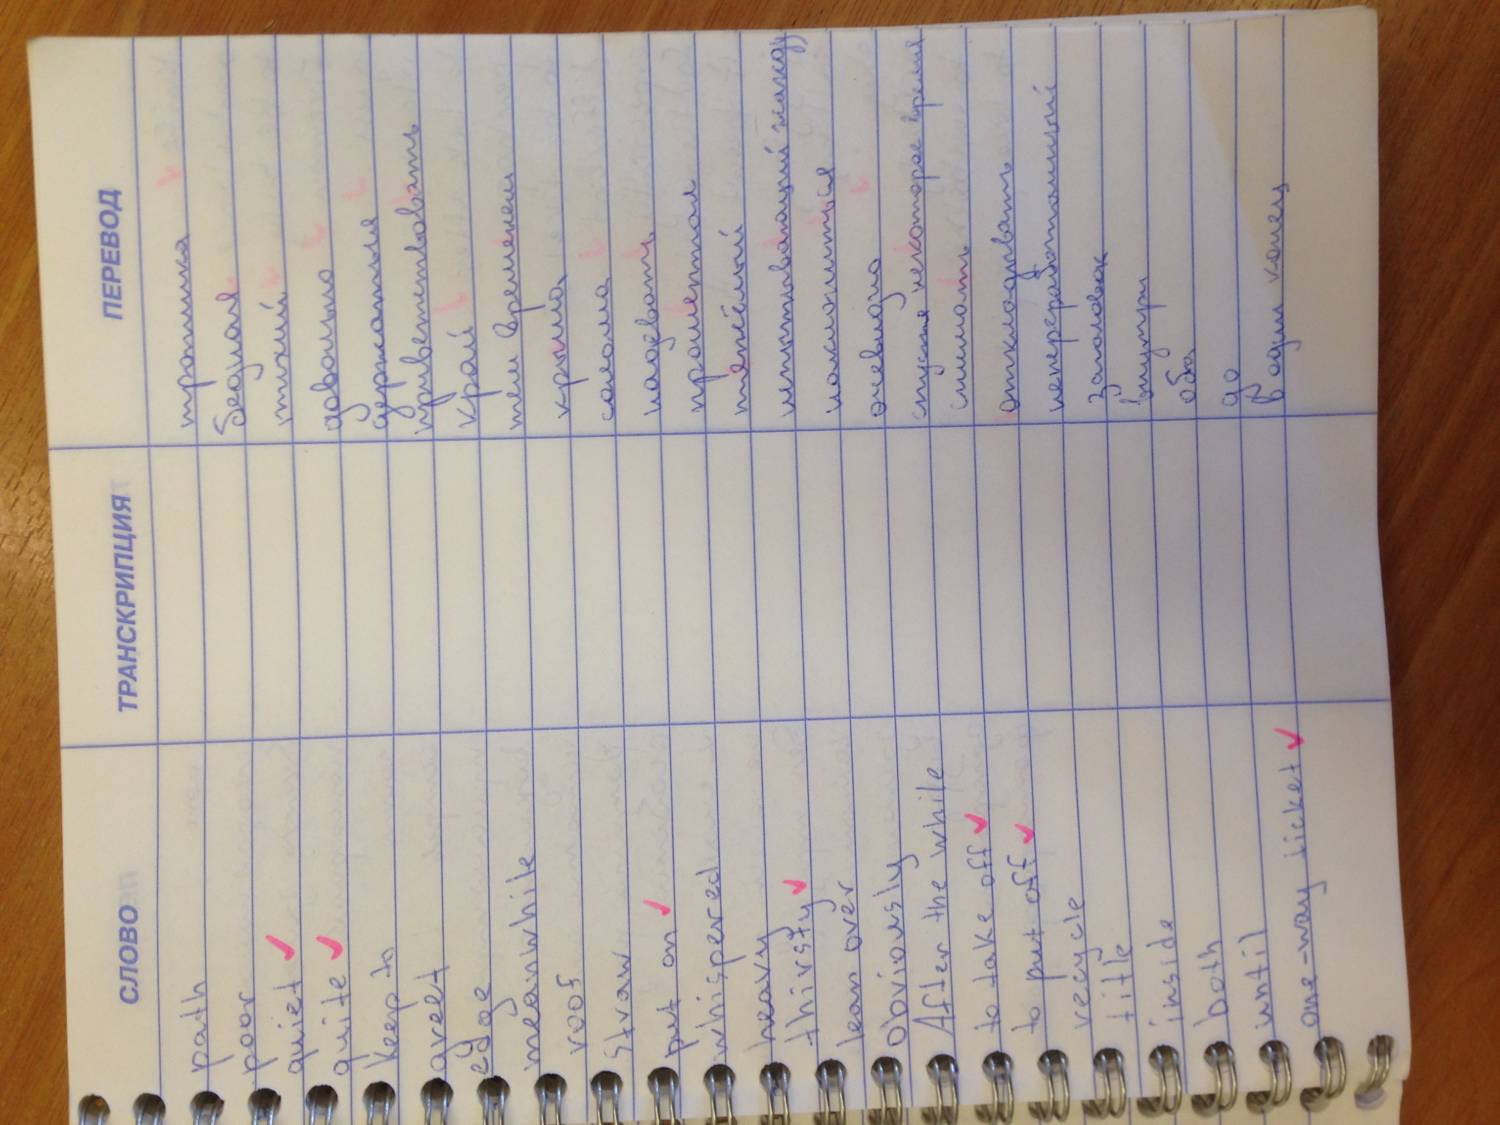 СЛОВО ТРАНСКРИПЦИЯ ПЕРЕВОД
path тропинка
poor бедная
quiet тихий
quite довольно
keep to держаться
greet приветствовать
edge край
meanwhile тем временем
roof крыша
straw солома
put on надевать
whispered прошептал
heavy тяжёлый
thirsty испытывающий жажду
lean over наклониться
Obviously очевидно
After the while спустя некоторое время
to take off снимать
to put off откладывать
recycle
title Заголовок
inside внутри
both оба
until до
one-way ticket в один конец